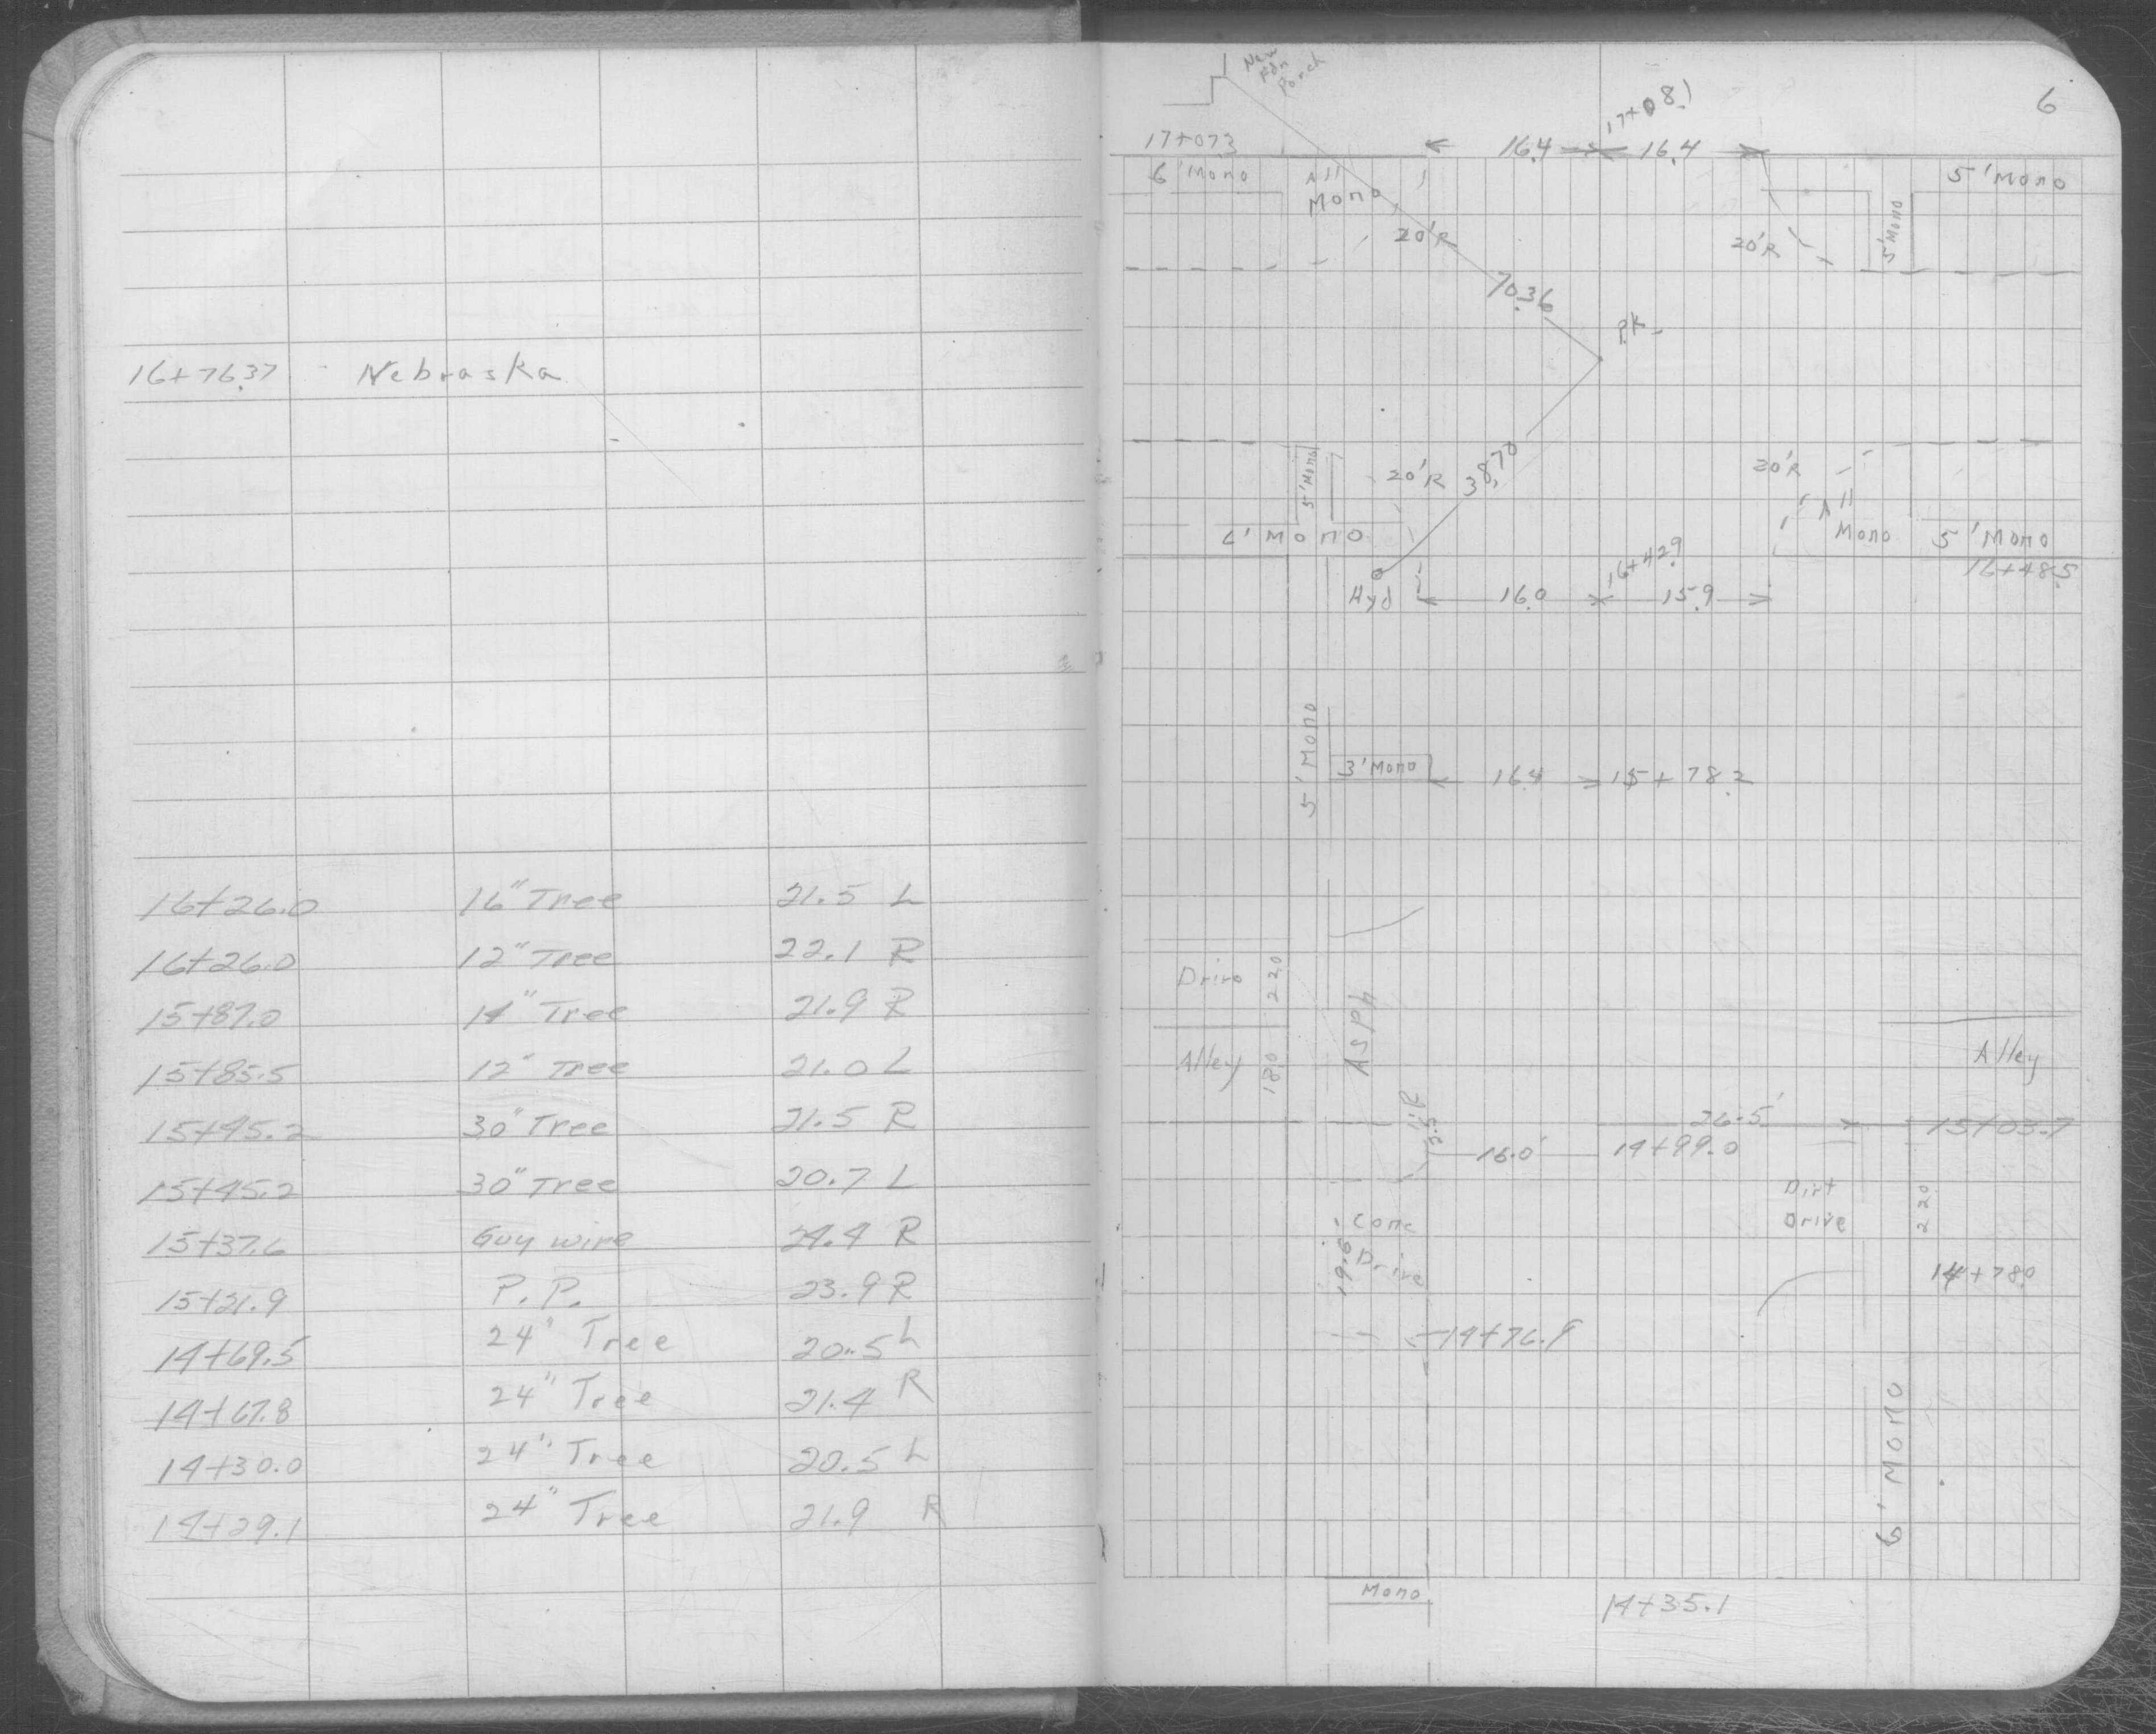 16+76.37 Nebraska
16+26.0 16" Tree 21.5 L
16+26.0 12" Tree 22.1 R
15+87.0 14" Tree 21.9 R
15+85.5 12" Tree 21.0 L
15+45.2 30" Tree 21.5 R
15+45.2 30" Tree 20.7 L
15+37.6 Guy wire 24.4 R
15+21.9 P.P. 23.9 R
14+69.5 24" Tree 20.5 L
14+67.8 24" Tree 21.4 R
14+30.0 24" Tree 20.5 L
14+29.1 24" Tree 21.9 R
6
New
Fdn
Porch
17+08.1
17+07.3
16.4 16.4
6' Mono
All
Mono
5' Mono
5' Mono
20'R
20'R
70.36
P.K.
38.70
5' Mono
20'R
20'R
All
Mono
6' Mono
5' Mono
16+48.5
16+42.9
Hyd
16.0 15.9
5' Mono
3' Mono
16.4
15+78.2
Drive
22.0
Asph
Alley
18.0
Alley
26.5'
15+03.7
16.0'
14+99.0
Dirt
Drive
22.0
Conc
Drive
19.6
14+78.0
14+76.9
6' Mono
Mono
14+35.1